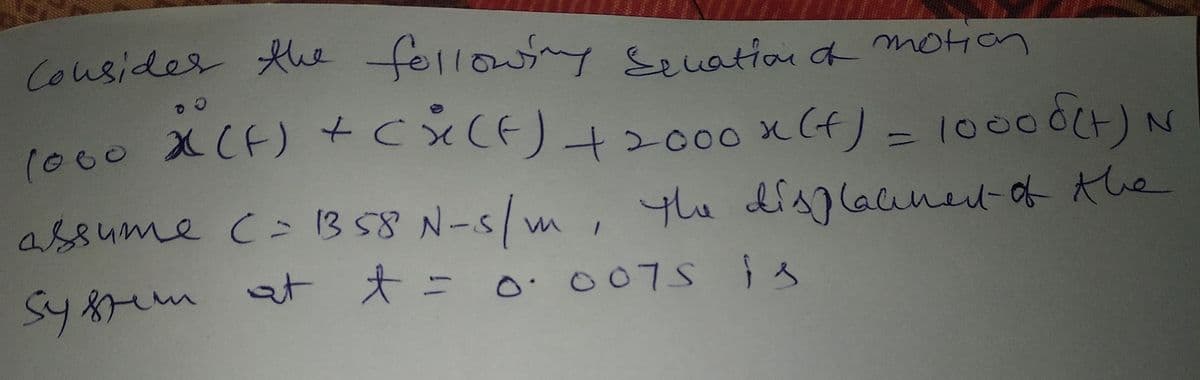 Consider the following Equation of motion
1000 ẍ(t) + c ẋ(t) + 2000 x(t) = 1000 δ(t) N
assume C = 1358 N-s/m, the displacement of the
system at t = 0.007s is